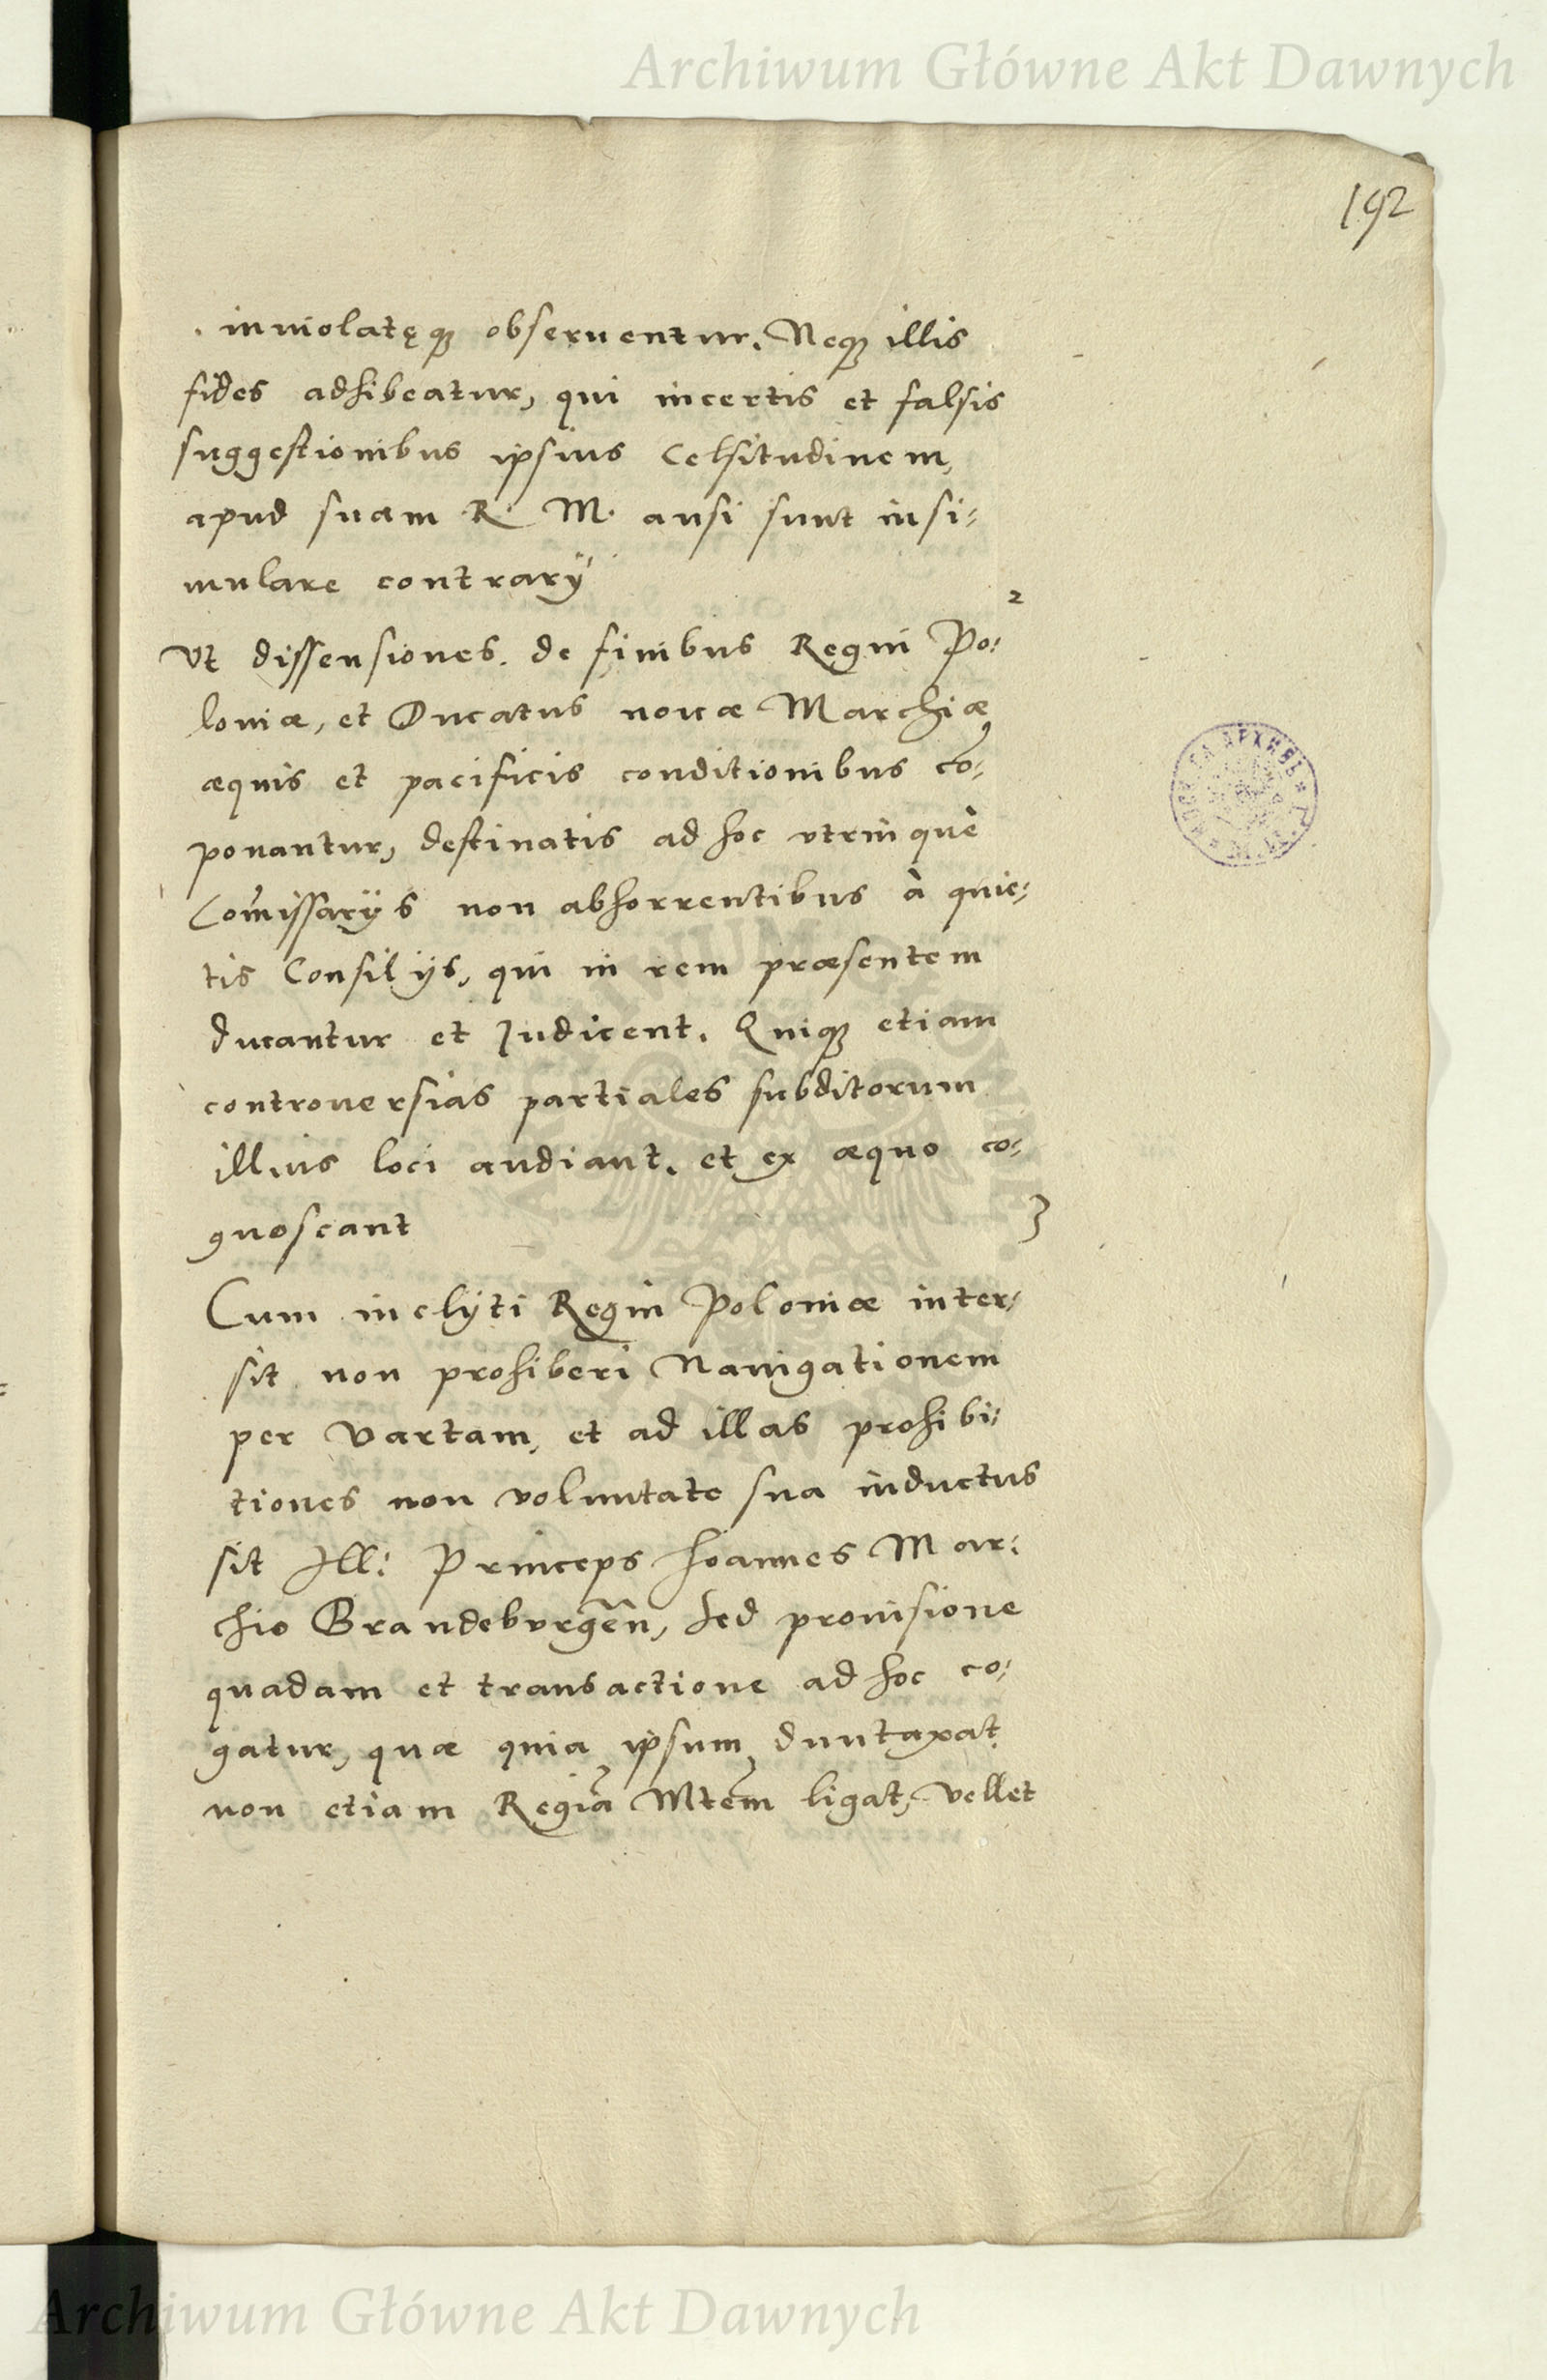 Archiwum Główne Akt Dawnych
192
inuiolatęq; obseruentur. Neq; illis
fides adhibeatur, qui incertis et falsis
suggestionibus ipsius Celsitudinem,
apud suam R. M. ausi sunt insi:
mulare contrarÿ
2
Vt dissensiones. de finibus Regni Po:
loniæ, et Ducatus nouæ Marchiæ
æquis et pacificis conditionibus cō:
ponantur, destinatis ad hoc vtrinquè
Com̄issarÿs non abhorrentibus à quie:
tis Consilÿs, qui in rem præsentem
ducantur et Judicent. Quiq; etiam
controuersias partiales subditorum
illius loci audiant. et ex æquo co:
gnoscant
3
Cum inclÿti Regni Poloniæ inter:
sit non prohiberi Nauigationem
per Vartam, et ad illas prohibi:
tiones non voluntate sua inductus
sit Ill: Princeps Joannes Mar:
chio Brandeburgēn, sed prouisione
quadam et transactione ad hoc co:
gatur, quæ quia ipsum duntaxat
non etiam Regiā Mtēm ligat, vellet
Archiwum Główne Akt Dawnych